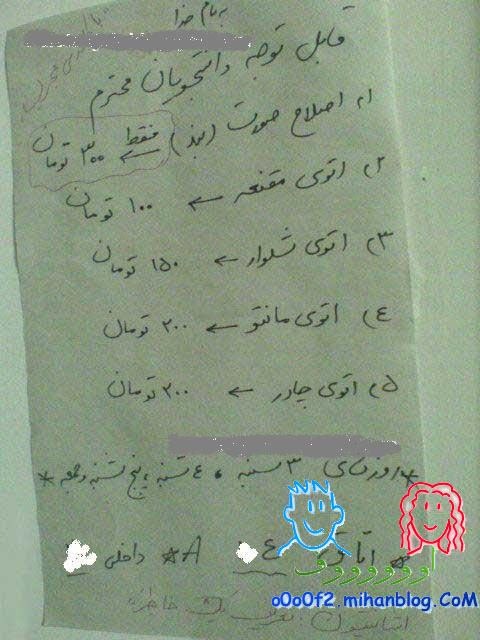 به نام خدا
قابل توجه دانشجویان محترم
۱) اصلاح صورت (بند) ← فقط ۳۰۰ تومان
۲) اتوی مقنعه ← ۱۰۰ تومان
۳) اتوی شلوار ← ۱۵۰ تومان
٤) اتوی مانتو ← ۲۰۰ تومان
۵) اتوی چادر ← ۲۰۰ تومان
* روزهای ۳ شنبه ، ٤ شنبه ، پنج شنبه و جمعه *
* اتاق ٤ A * داخلی
اوووووووف
o0o0f2.mihanblog.CoM